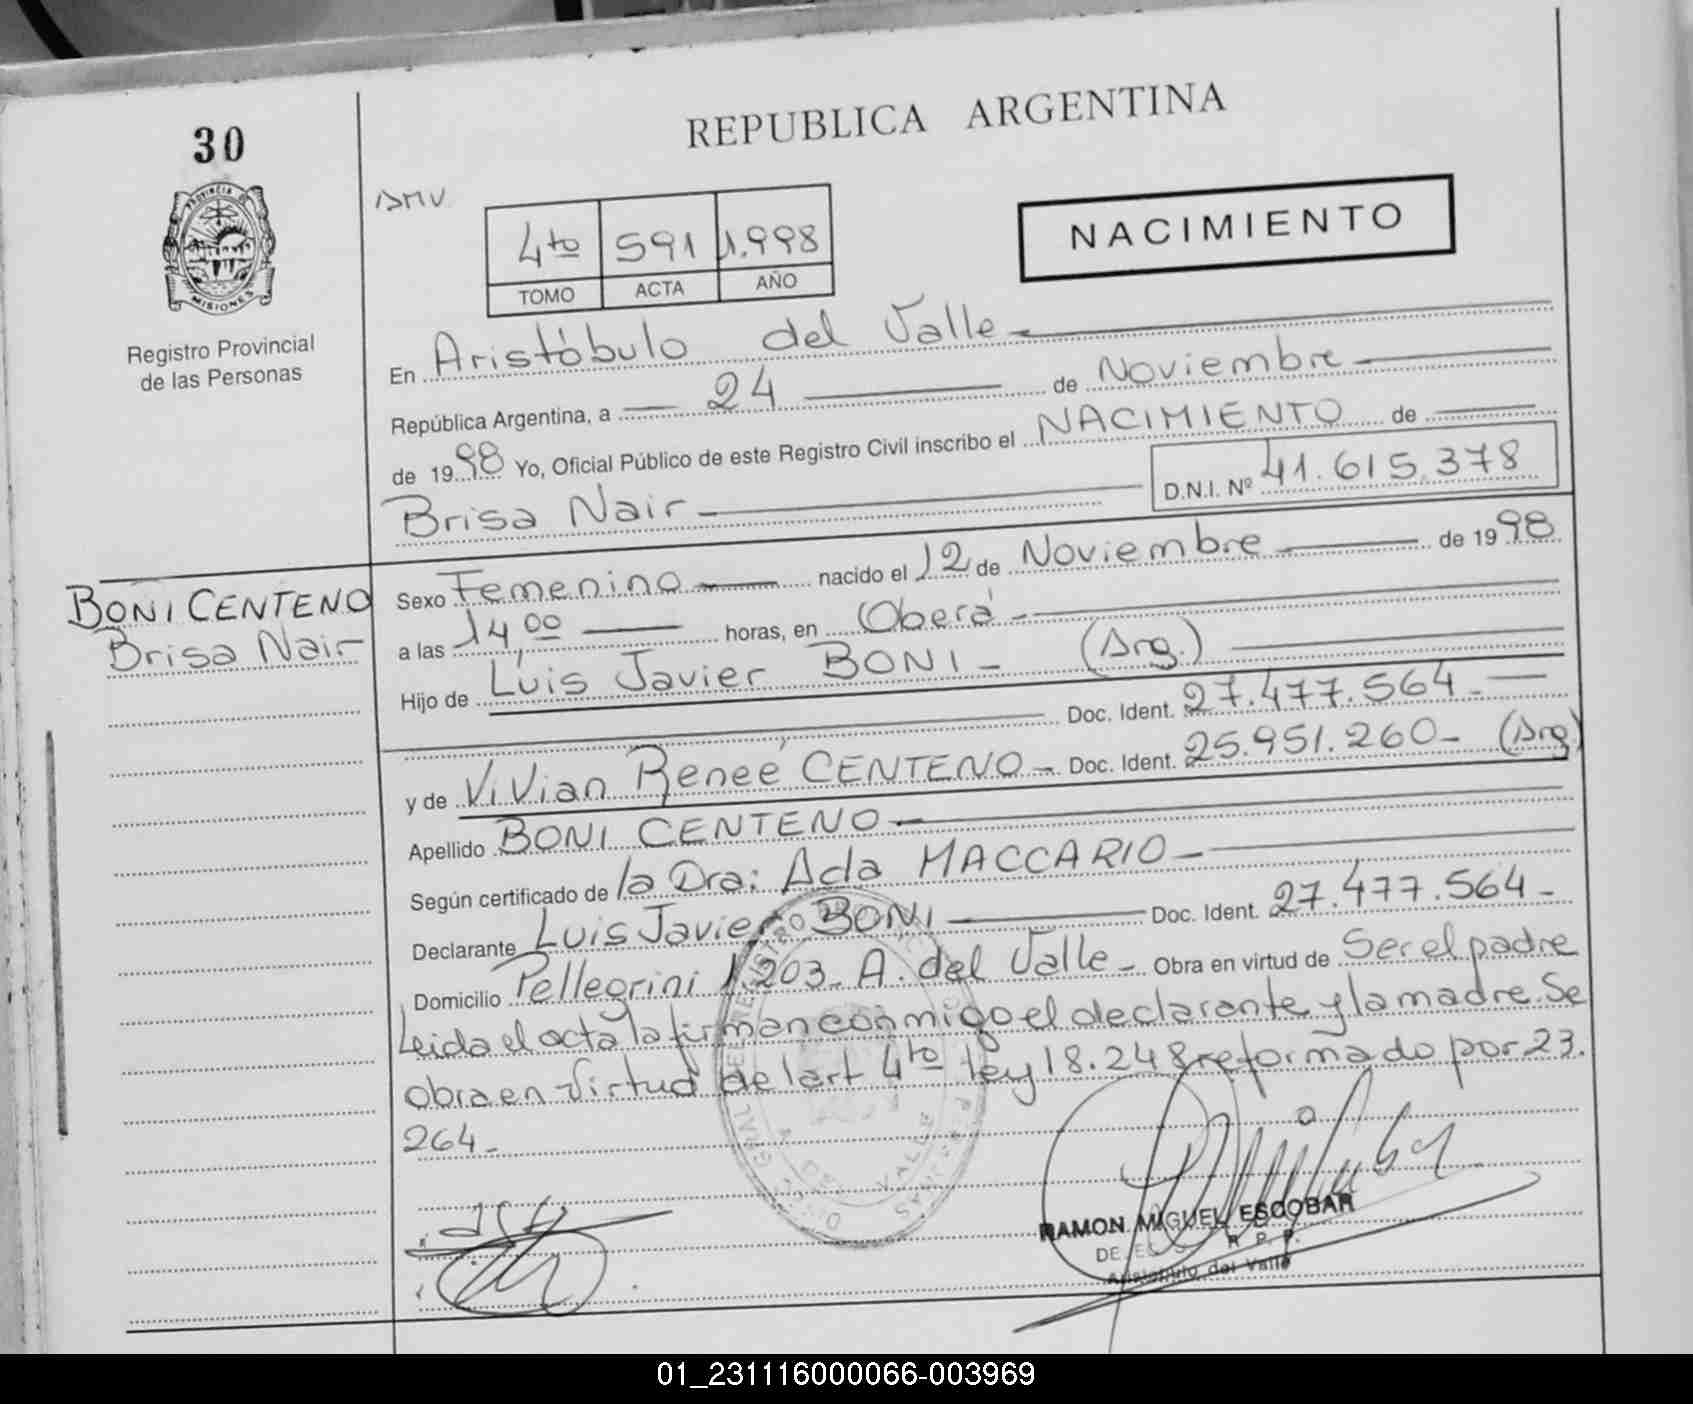 30
REPUBLICA ARGENTINA
PROVINCIA DE
MISIONES
Registro Provincial
de las Personas
4to 591 1.998
TOMO ACTA AÑO
NACIMIENTO
En Aristóbulo del Valle
República Argentina, a 24 de Noviembre
de 1998 Yo, Oficial Público de este Registro Civil inscribo el NACIMIENTO de
Brisa Nair D.N.I. Nº 41.615.378
BONI CENTENO
Brisa Nair
Sexo Femenino nacido el 12 de Noviembre de 1998
a las 14,00 horas, en Oberá
Hijo de Luis Javier BONI (Arg.)
Doc. Ident. 27.477.564
y de Vivian Reneé CENTENO Doc. Ident. 25.951.260 (Arg)
Apellido BONI CENTENO
Según certificado de la Dra: Ada MACCARIO
Declarante Luis Javier BONI Doc. Ident. 27.477.564
Domicilio Pellegrini 1.203 A. del Valle Obra en virtud de Ser el padre
Leida el acta la firman conmigo el declarante y la madre. Se
obra en Virtud de l art 4to Ley 18.248 reformado por 23.
264
RAMON MIGUEL ESCOBAR
R. P. P.
Aristobulo del Valle
01_231116000066-003969